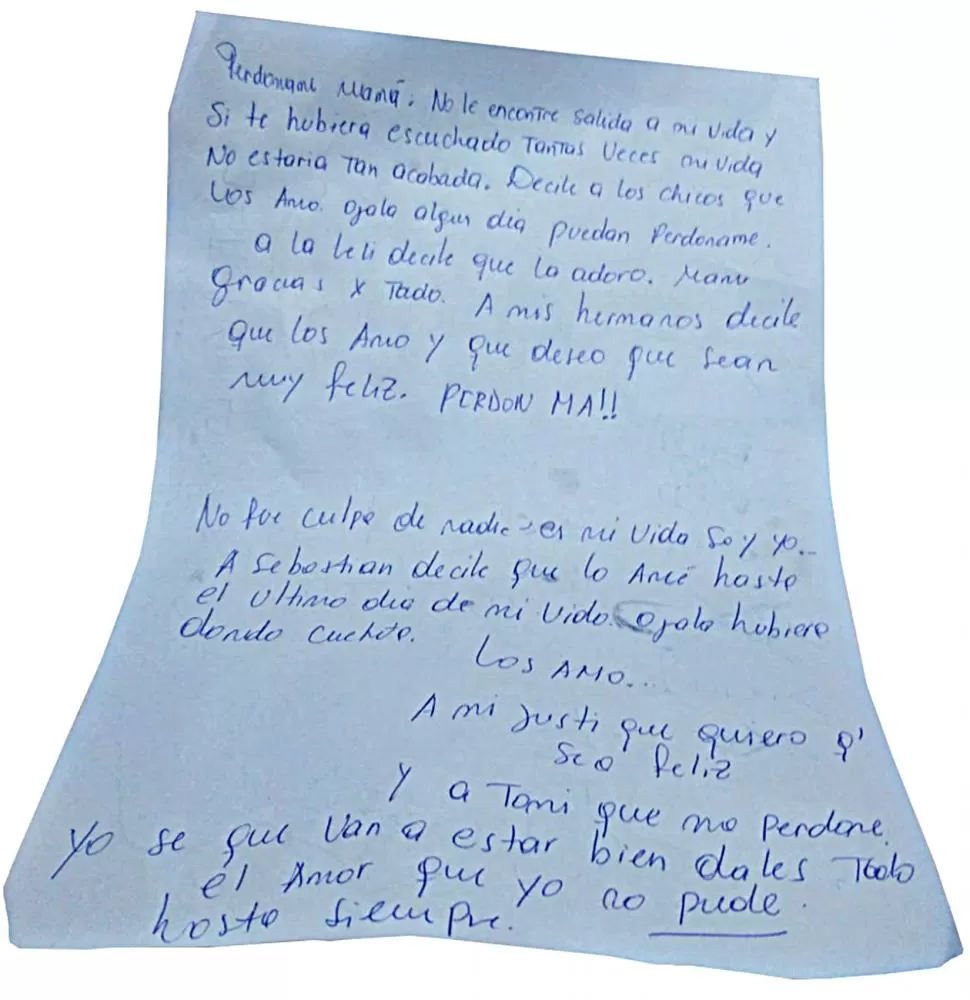 Perdoname Mamá. No le encontre salida a mi vida y
Si te hubiera escuchado Tantas Veces mi vida
No estaria Tan acabada. Decile a los chicos que
Los Amo. ojala algun dia puedan Perdoname.
a la Leli decile que la adoro. Manu
gracias x Todo. A mis hermanos decile
que los Amo y que deseo que sean
muy feliz. PERDON MA!!
No fue culpa de nadie es mi vida soy yo...
A Sebastian decile que lo Amé hasta
el ultimo dia de mi vida. ojala hubiera
dondo cuenta.
Los AMO...
A mi Justi que quiero q'
sea feliz
Y a Tomi que me perdone.
Yo se que Van a estar bien dales Todo
el Amor que yo no pude.
hasta siempre.